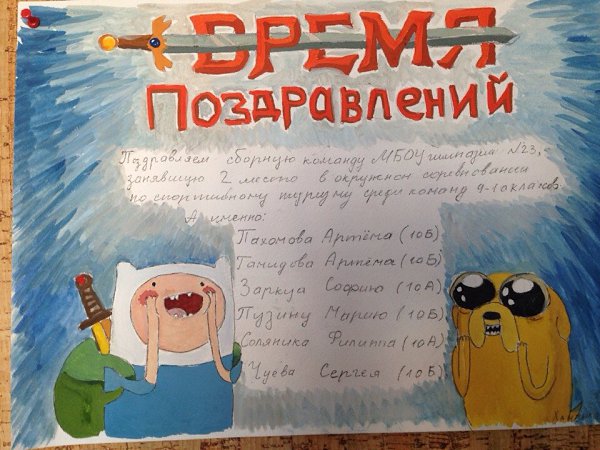 ВРЕМЯ
Поздравлений
Поздравляем сборную команду МБОУ гимназии №23,
занявшую 2 место в окружном соревновании
по спортивному туризму среди команд 9-10 классов.
А именно:
Пахомова Артёма (10Б)
Гамидова Артёма (10Б)
Заркуа Софию (10А)
Пузину Марию (10Б)
Соляника Филиппа (10А)
Чуева Сергея (10Б)